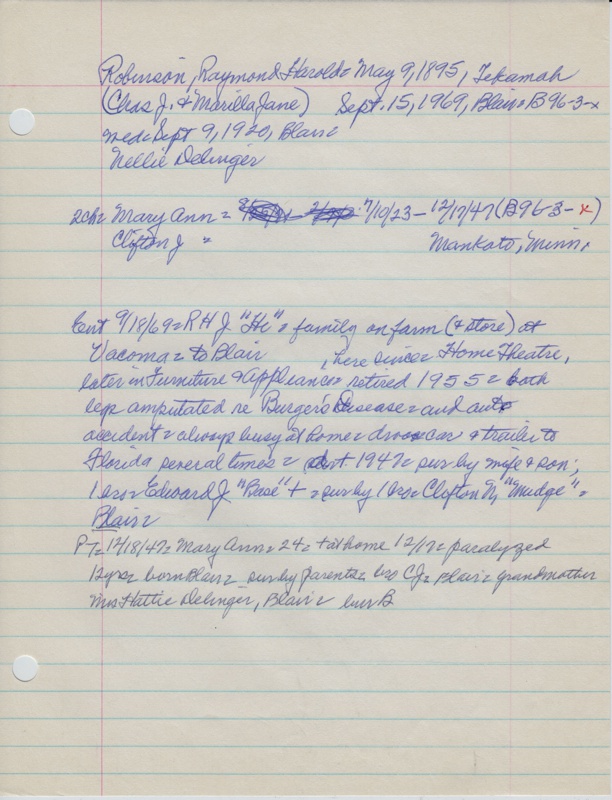 Robinson, Raymond Harold = May 9, 1895, Tekamah
(Chas J. & Marilla Jane) Sept. 15, 1969, Blair = B 96-3-x
med = Sept 9, 1920, Blair =
Nellie Delinger
2ch = Mary Ann = 7/10/23 - 12/17/47 (B 96-3-x)
Clifton J = Mankato, Minn.
Ent 9/18/69 = R H J "Hi" = family on farm (& store) at
Vacoma = to Blair , here since = Home Theatre,
later in Furniture & Appliances = retired 1955 = both
legs amputated re Burger's Disease = and auto
accident = always busy at home = drove car & trailer to
Florida several times = 1947 = sur by wife & son;
1 bro = Edward J "Base" + = sur by 1 bro = Clifton N, "Mudge" =
Blair =
PT = 12/18/47 = Mary Ann = 24 = + at home 12/17 = paralyzed
12 yrs = born Blair = sur by parents = bro CJ = Blair = grandmother
Mrs Hattie Delinger, Blair = bur B